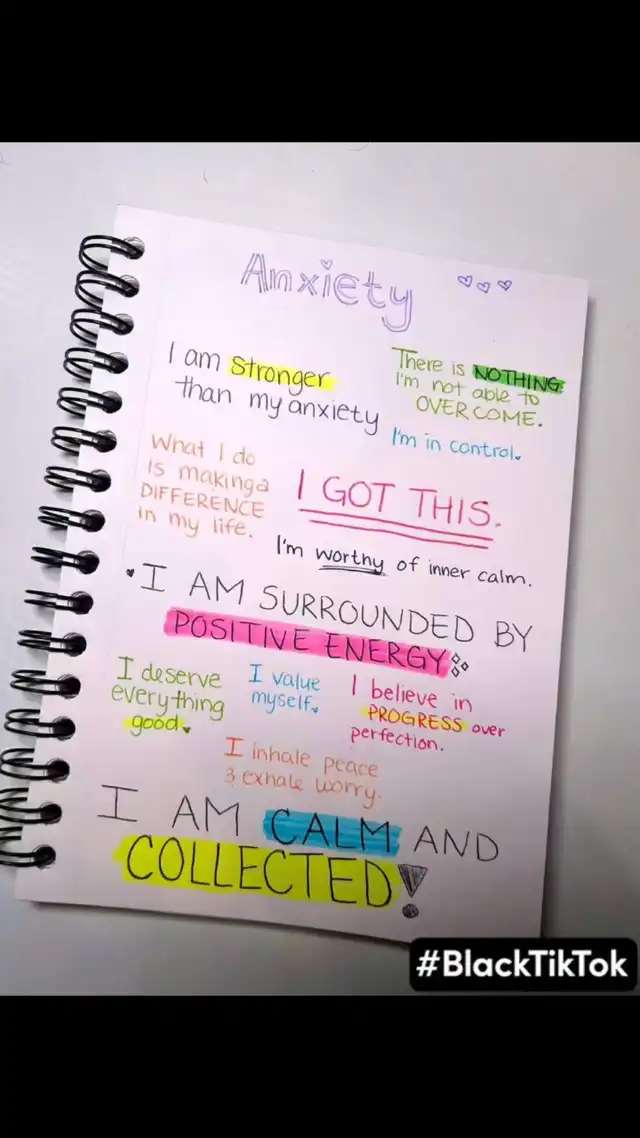 Anxiety
I am Stronger
than my anxiety
There is NOTHING
I'm not able to
OVERCOME.
I'm in control.
What I do
is making a
DIFFERENCE
in my life.
I GOT THIS.
I'm worthy of inner calm.
I AM SURROUNDED BY
POSITIVE ENERGY
I deserve
everything
good.
I value
myself.
I believe in
PROGRESS over
perfection.
I inhale peace
& exhale worry.
I AM CALM AND
COLLECTED!
#BlackTikTok